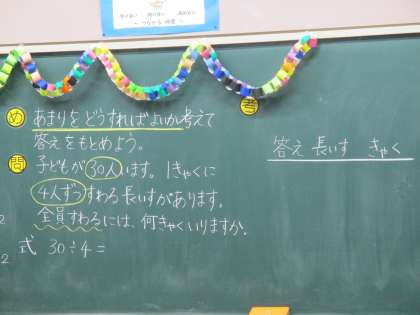 め あまりを どうすればよいか考えて
答えをもとめよう。
問 子どもが30人います。1きゃくに
4人ずつすわる長いすがあります。
全員すわるには、何きゃくいりますか。
式 30÷4＝
考
答え 長いす きゃく
2
2